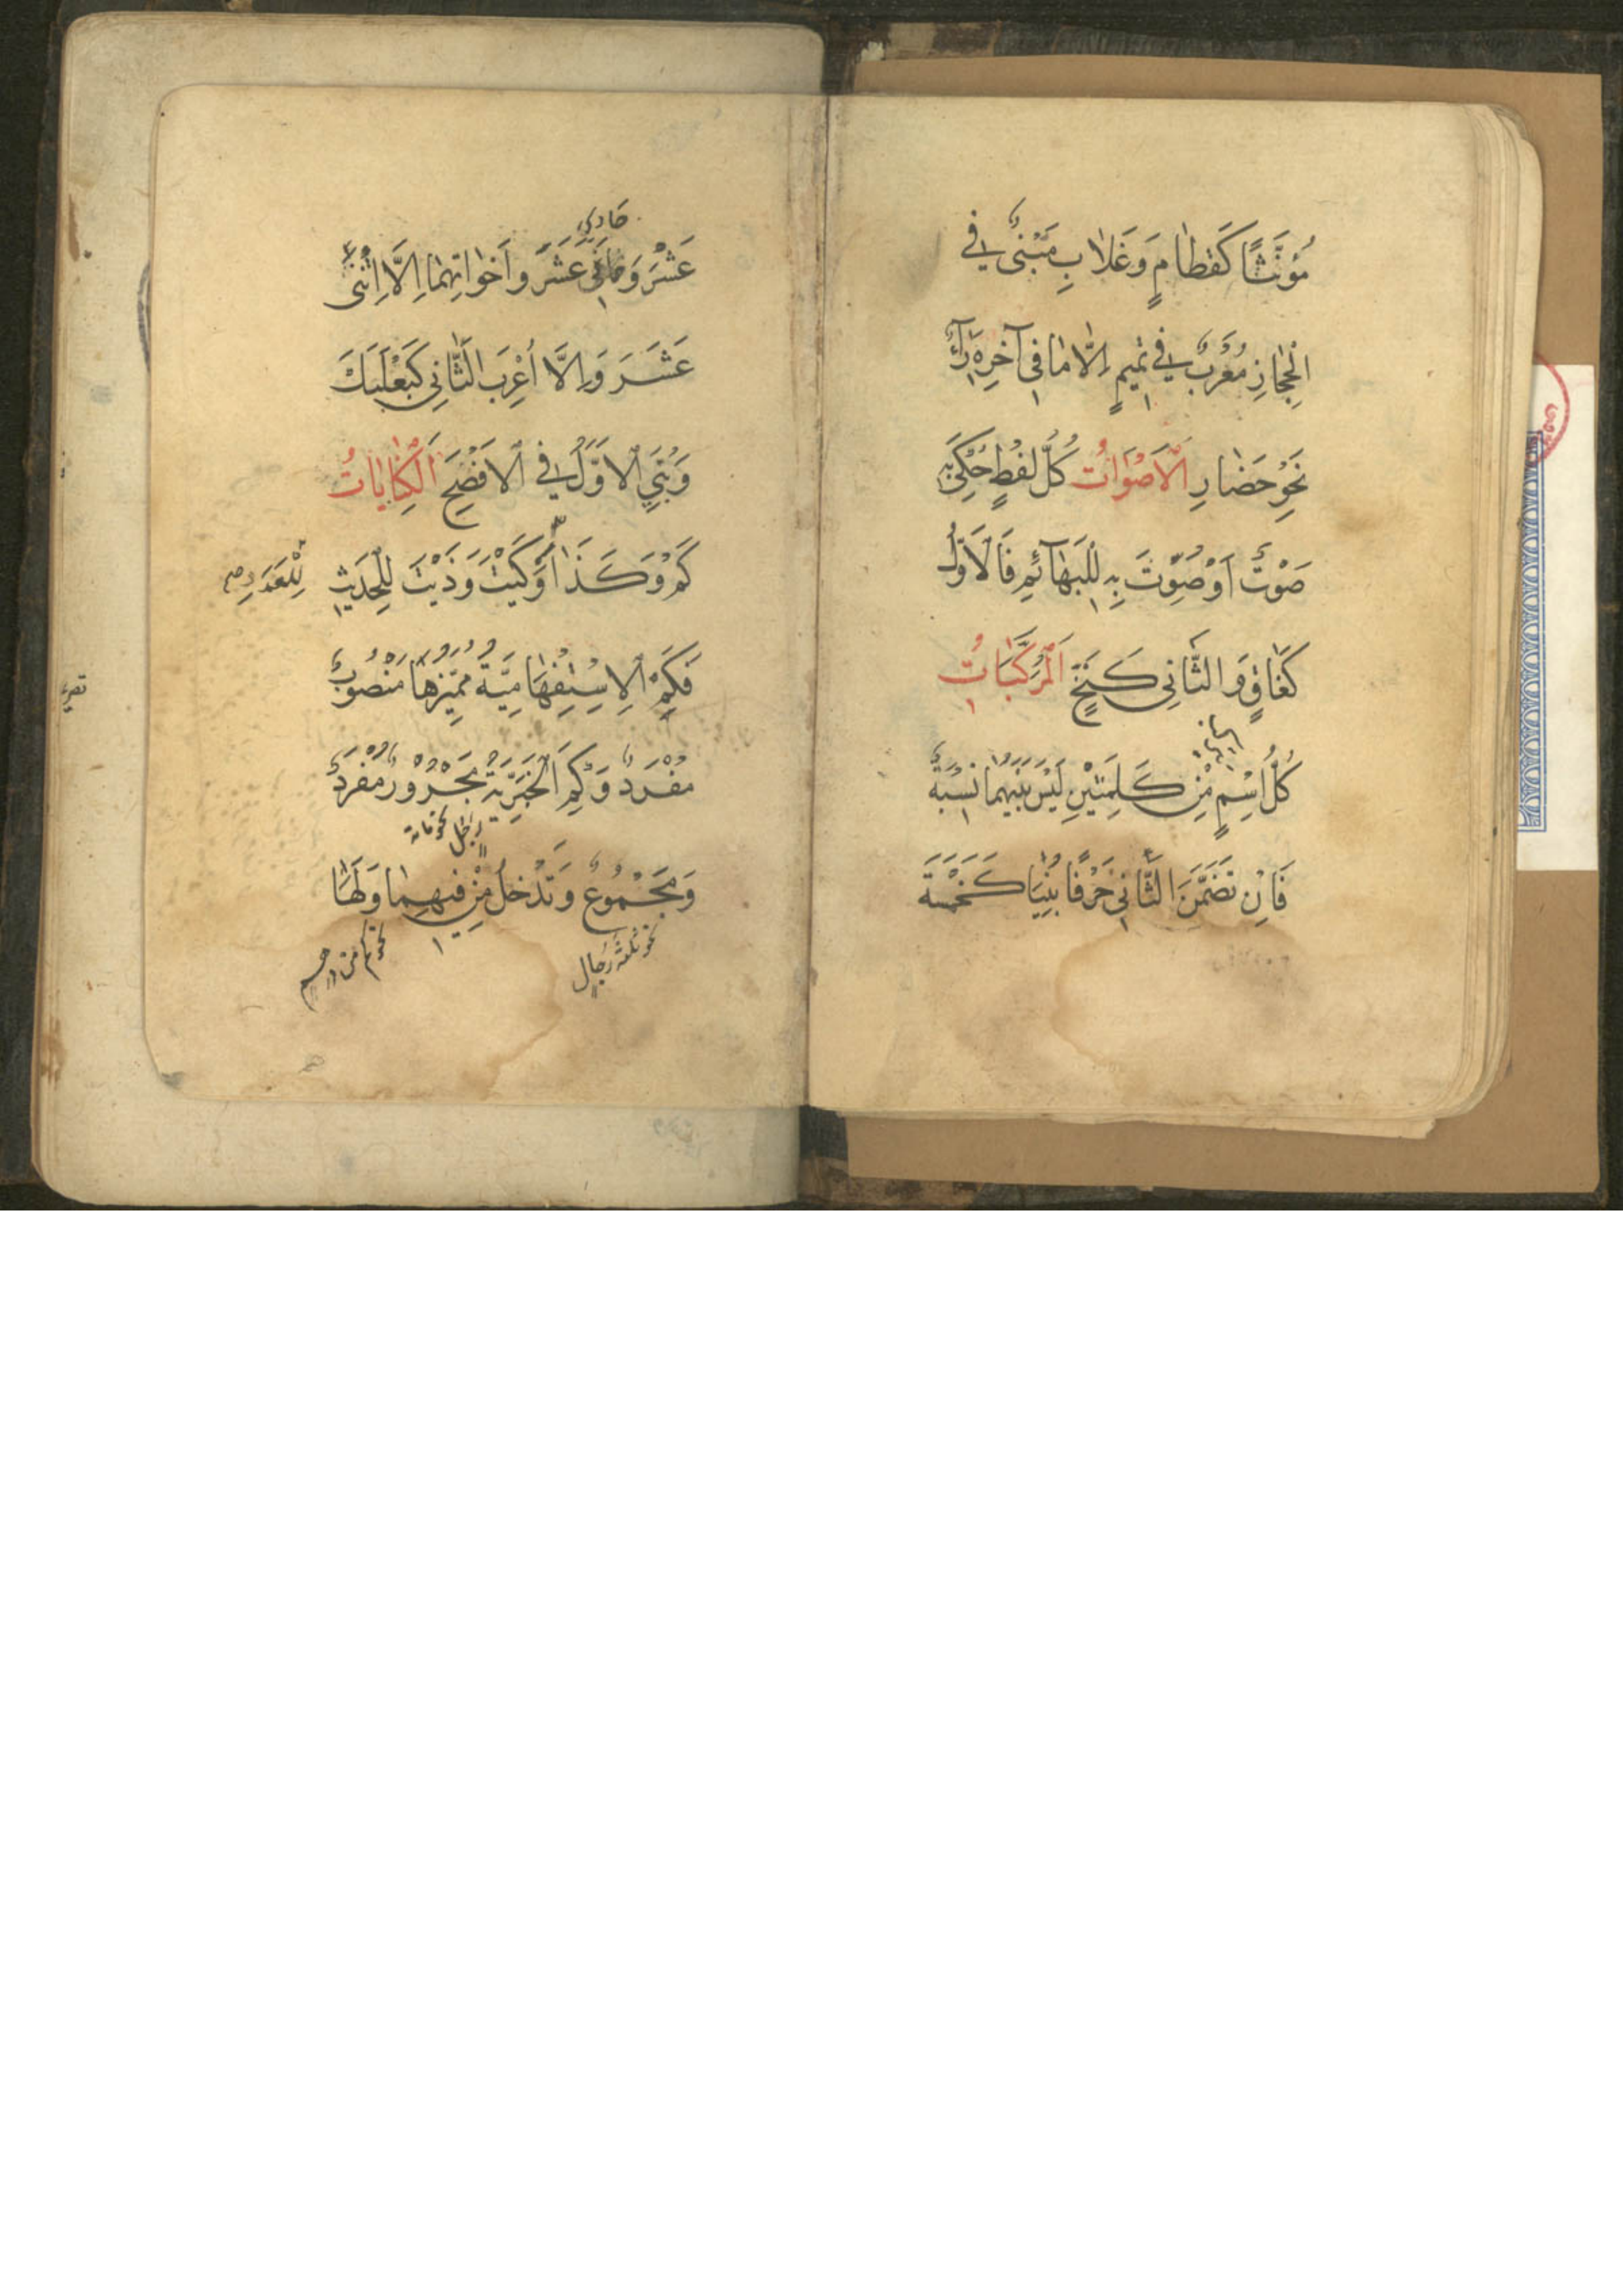 مُؤَنَّثًا كَفَطَامِ وَغَلَابِ مَبْنِيٌّ فِي
الْحِجَازِ مُعْرَبٌ فِي تَمِيمٍ اِلَّا مَا فِي آخِرِهِ رَآءٌ
نَحْوُ حَضَارِ اَلْاَصْوَاتُ كُلُّ لَفْظٍ حُكِيَ بِهِ
صَوْتٌ اَوْ صُوِّتَ بِهِ لِلْبَهَآئِمِ فَالْاَوَّلُ
كَغَاقٍ وَالثَّانِي كَنَخٍّ اَلْمُرَكَّبَاتُ
كُلُّ اسْمٍ مِنْ كَلِمَتَيْنِ لَيْسَ بَيْنَهُمَا نِسْبَةٌ
فَاِنْ تَضَمَّنَ الثَّانِي حَرْفًا بُنِيَا كَخَمْسَةَ
حادي
عَشَرَ وَحَادِيَ عَشَرَ وَاَخَوَاتِهِمَا اِلَّا اِثْنَيْ
عَشَرَ وَاِلَّا اُعْرِبَ الثَّانِي كَبَعْلَبَكَّ
وَبُنِيَ الْاَوَّلُ فِي الْاَفْصَحِ اَلْكِنَايَاتُ
كَمْ وَكَذَا وَكَيْتَ وَذَيْتَ لِلْحَدِيثِ
لِلْعَدَدِ صح
فَكَمْ الْاِسْتِفْهَامِيَّةُ مُمَيِّزُهَا مَنْصُوبٌ
مُفْرَدٌ وَكَمْ الْخَبَرِيَّةُ مَجْرُورٌ مُفْرَدٌ
نحو مائة رجل
وَمَجْمُوعٌ وَتَدْخُلُ مِنْ فِيهِمَا وَلَهَا
نحو ثلثة رجال
نحو كم من درهم